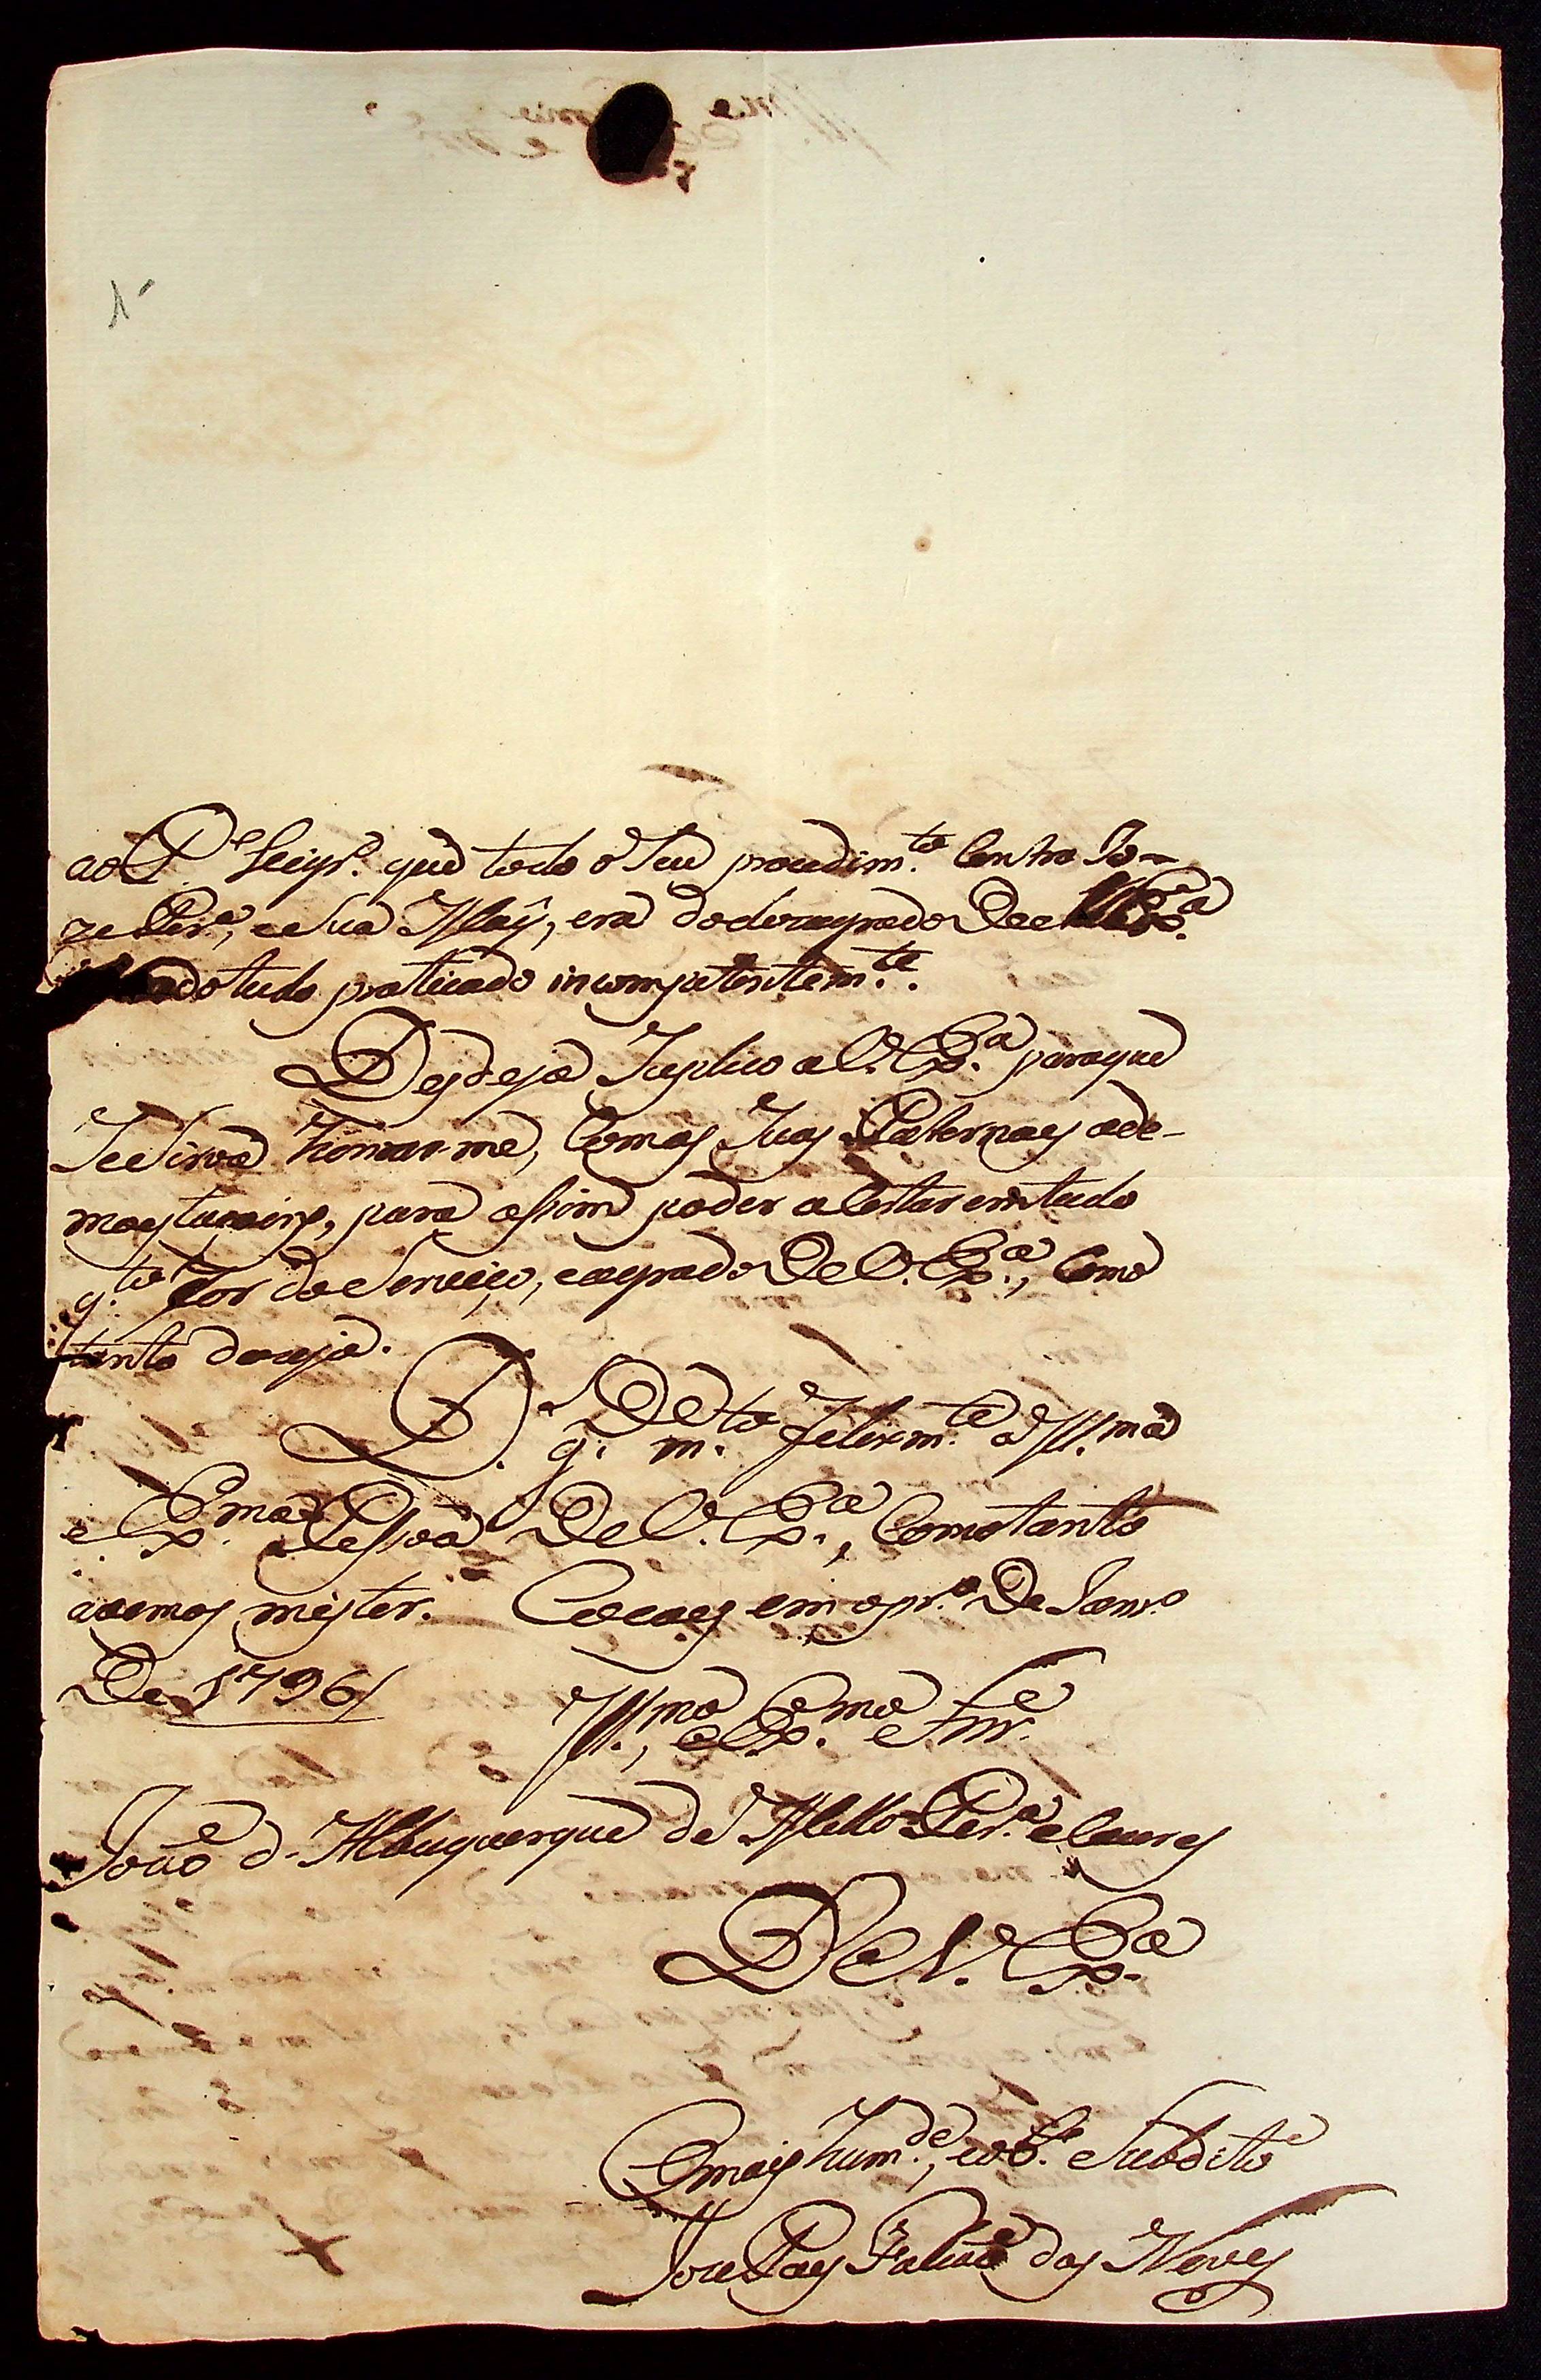 ao P.e Leigr.o que todo o Seu procedim.to Contra Jo-
ze Per.a, e Sua May, era do dezagrado De V. Ex.a
tudo praticado incompetentem.te.
Desdeja Suplico a V. Ex.a paraque
Se Sirva honrar-me, Com as Suas Paternaes ade-
moestasoins, para assim poder acertar em tudo
q.to for do Serviço, eagrado De V. Ex.a, Como
tanto dezeja.
D.s g.e m.to felixm.te a Ill.ma
e Ex.ma Pessoa De V. Ex.a, Como tanto
avemos mister. Cocaes em o pr.o De Janr.o
De 1796
Ill.mo, e Ex.mo Snr.
João d' Albuquerque de Mello Per.a e Caceres
De V. Ex.a
O mais hum.de, e ob.e Subdito
Joze Paes Falcão das Neves